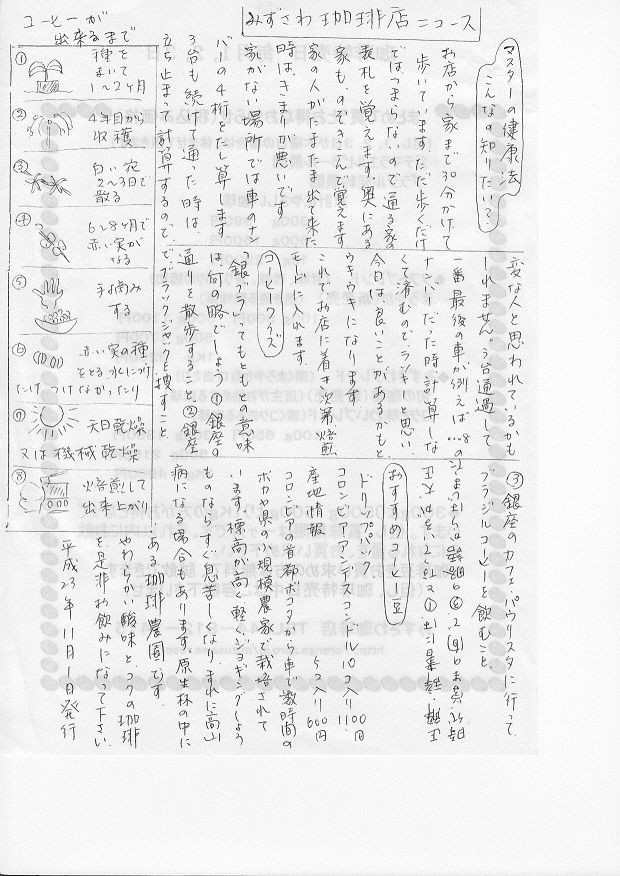 みずさわ珈琲店ニュース
マスターの健康法
こんなの知りたい?
お店から家まで30分かけて
歩いています。ただ歩くだけ
ではつまらないので通る家の
表札を覚えます。奥にある
家も、のぞきこんで覚えます
家の人がたまたま出て来た
時は、きまりが悪いです。
家がない場所では車のナン
バーの4桁をたし算します。
3台も続けて通った時は
立ち止まって計算するので、
変な人と思われているかも
しれません。3台通過して
一番最後の車が例えば…8の
ナンバーだった時計算しな
くて済むので、ラッキーと思い
今日は良いことがあるかもと
ウキウキになります
これでお店に着き次第焙煎
モードに入れます
コーヒークイズ
「銀ブラ」ってもともとの意味
は何の略でしょう①銀座の
通りを散歩すること②銀座
でブラックジャックを捜すこと
③銀座のカフェ・パウリスタに行って
ブラジルコーヒーを飲むこと。
おすすめコーヒー豆
ドリップパック
コロンビアアンデスコンドル10コ入り1100円
5コ入り600円
産地情報
コロンビアの首都ボゴタから車で数時間の
ボヤカ県小規模農家で栽培されて
います標高が高く軽くジョギングしよう
ものならすぐ息苦しくなり、まれに高山
病になる場合もあります原生林の中に
ある珈琲農園です。
やわらかい酸味とコクの珈琲
を是非お飲みになって下さい。
平成23年11月1日発行
コーヒーが
出来るまで
①種を
まいて
1〜2ヶ月
②4年目から
収穫
③白い花
2〜3日で
散る
④6〜8ヶ月で
赤い実が
なる
⑤手摘み
する
⑥赤い実の種
をとる水につけ
たけ つけなかったり
⑦天日乾燥
又は機械乾燥
⑧焙煎して
出来上がり